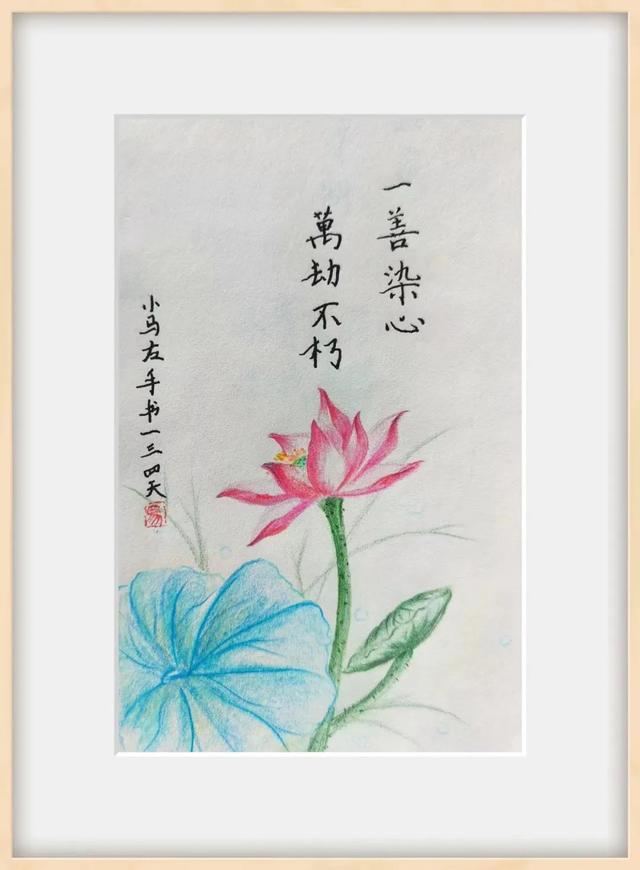 一善染心
萬劫不朽
小马左手书一三四天